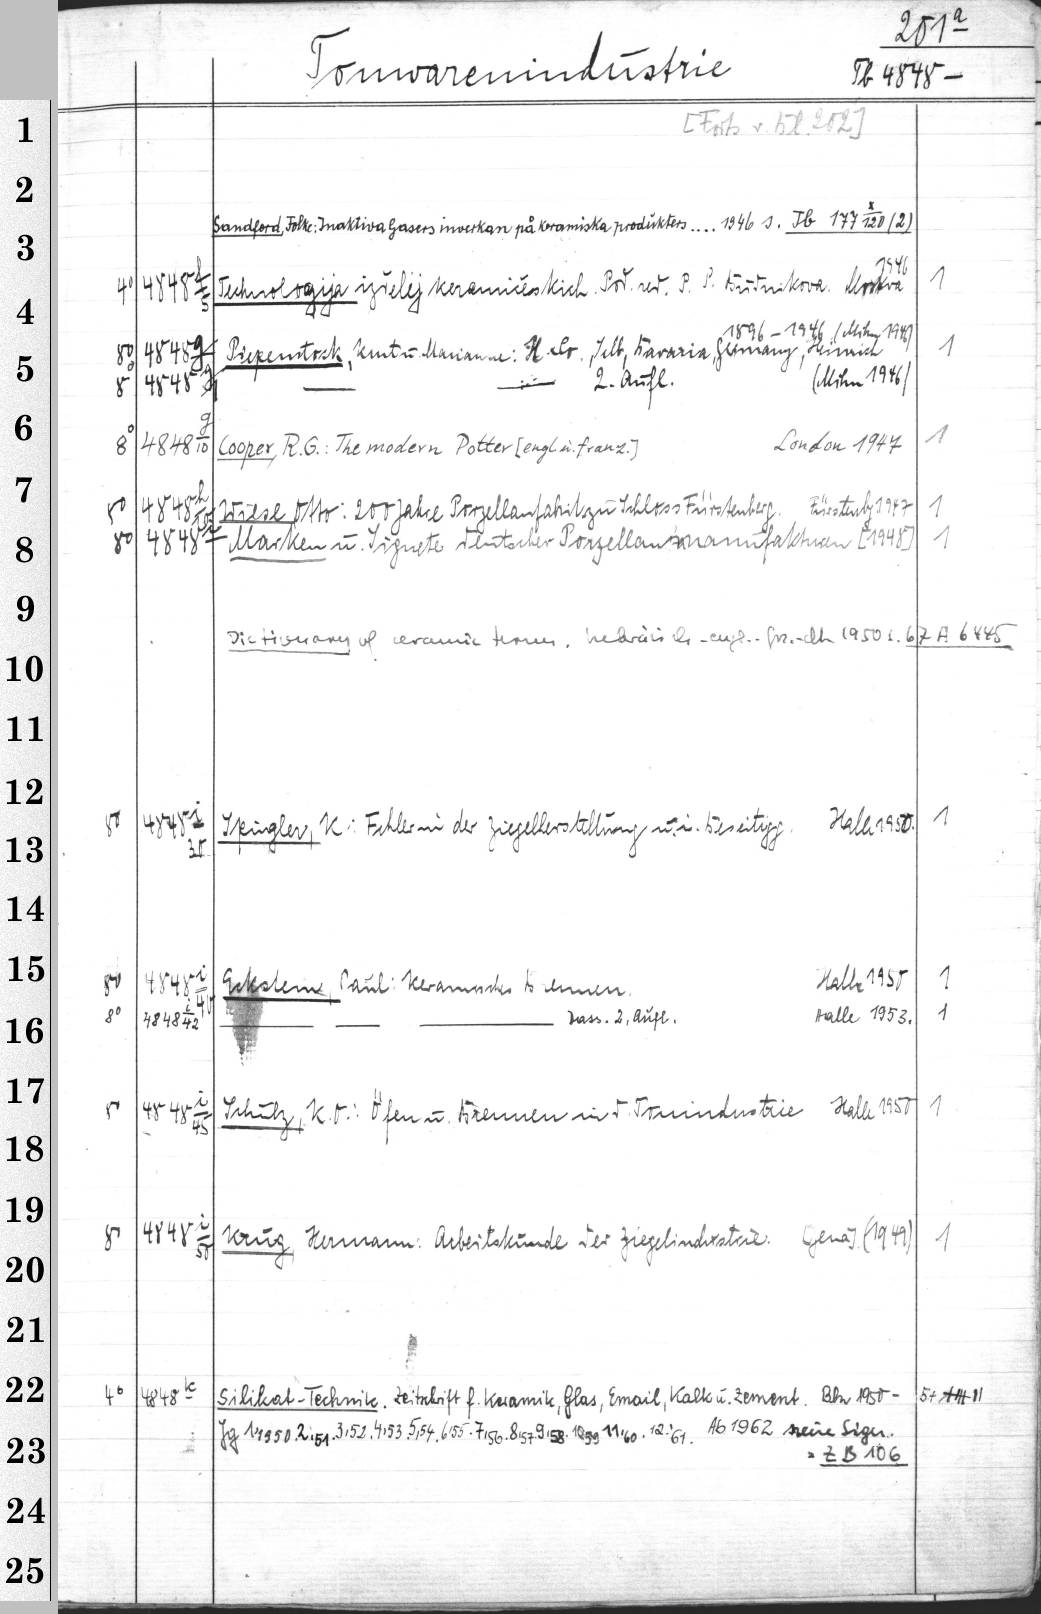 251a
Tonwarenindustrie
Tb 4848-
[Forts v. Bl. 252]
Sandford, Folke: Inaktiva Gasers inverkan på keramiska produkters .... 1946 s. Tb 177 x/120 (2)
4° 4848 f/5 Technologija izdelij keramičeskich. Pod. red. P. P. Budnikova. Moskva 1946 1
8° 4848 g Piepenstock, Kurt u. Marianne: H. & Co., Selb, Bavaria, Germany, Heinrich 1896-1946. (Mchn 1946) 1
8° 4848 g 2. Aufl. (Mchn 1946)
8° 4848 g/10 Cooper, R.G.: The modern Potter [engl. u. franz.] London 1947 1
8° 4848 h Wiese, Otto: 200 Jahre Porzellanfabrik zu Schloss Fürstenberg. Fürstenbg 1947 1
8° 4848 Marken u. Signete deutscher Porzellanmanufakturen [1948] 1
Dictionary of ceramic terms. hebräisch-engl.-frz.-dth 1950 s. 67 A 6445
8° 4848 i/30 Spingler, K.: Fehler in der Ziegelherstellung u. i. Beseitigg. Halle 1950. 1
8° 4848 i/40 Eckstein, Paul: Keramisches Brennen. Halle 1950 1
8° 4848 i/42 Dass. 2. Aufl. Halle 1953. 1
8° 4848 i/45 Schulz, K. O.: Öfen u. Brennen in d. Tonindustrie Halle 1950 1
8° 4848 i/50 Krug, Hermann: Arbeitskunde der Ziegelindustrie. (Jena). (1949) 1
4° 4848 k Silikat-Technik. Zeitschrift f. Keramik, Glas, Email, Kalk u. Zement. Bln 1950- 5+
Jg 1,1950. 2,51. 3,52. 4,53. 5,54. 6,55. 7,56. 8,57. 9,58. 10,59 11,60. 12,61. Ab 1962 neue Sign.
= ZB 106
1
2
3
4
5
6
7
8
9
10
11
12
13
14
15
16
17
18
19
20
21
22
23
24
25